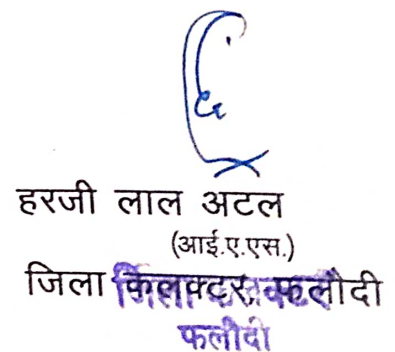 हरजी लाल अटल
(आई.ए.एस.)
जिला कलक्टर, फलौदी
फलौदी